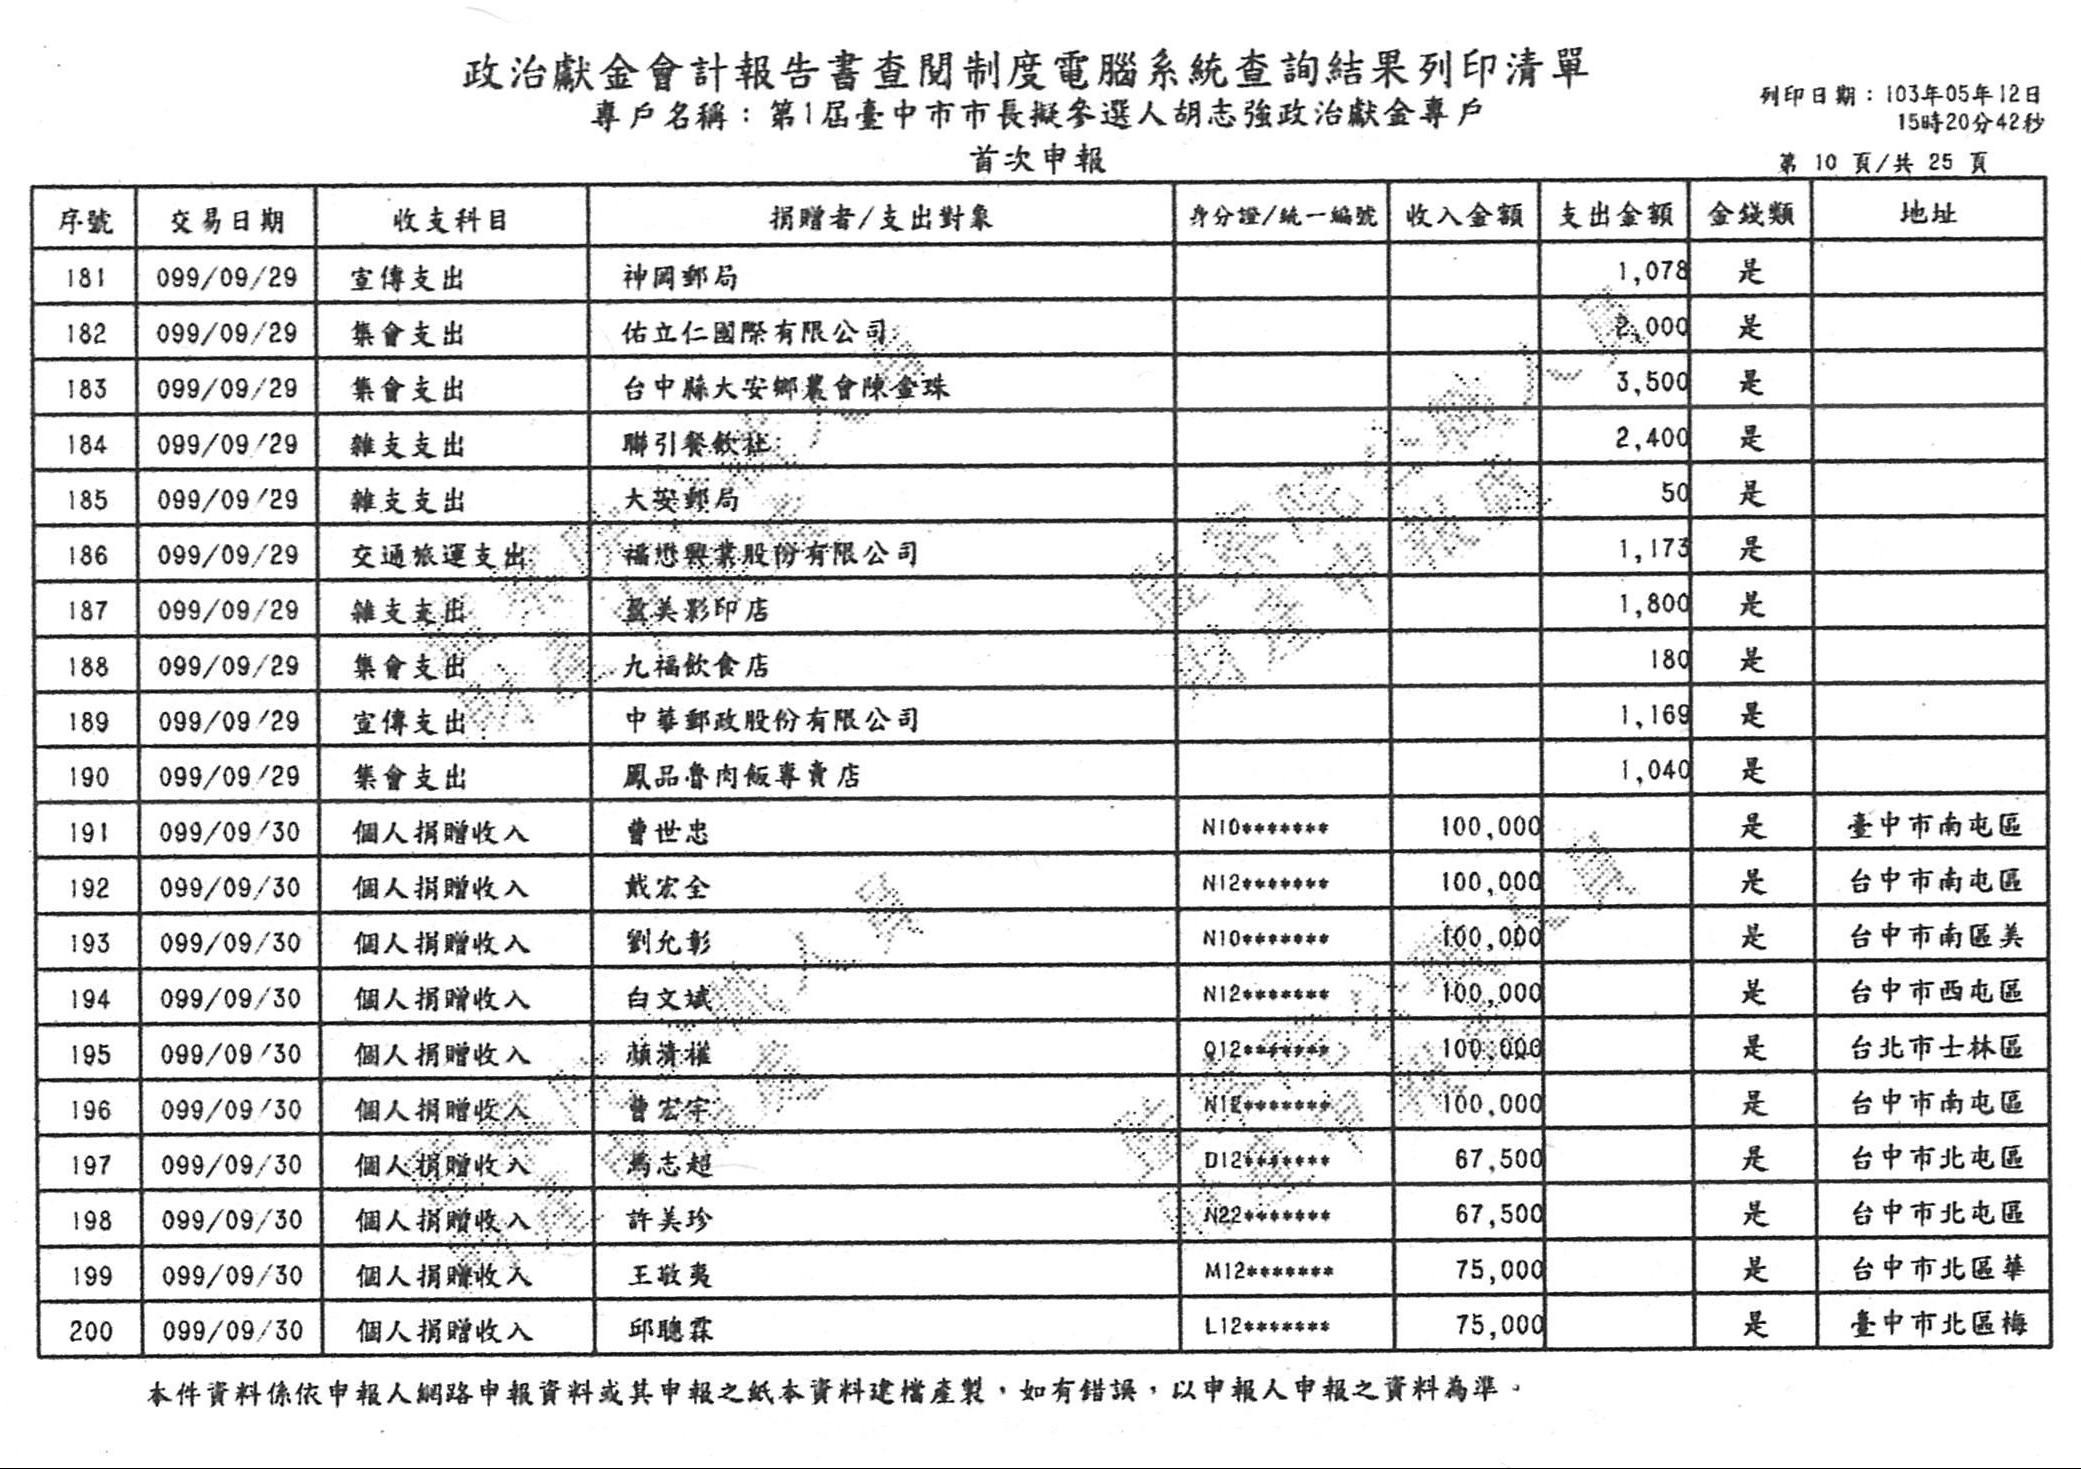 政治獻金會計報告書查閱制度電腦系統查詢結果列印清單
專戶名稱：第1屆臺中市市長擬參選人胡志強政治獻金專戶
首次申報
列印日期：103年05年12日
15時20分42秒
第 10 頁/共 25 頁
序號 交易日期 收支科目 捐贈者/支出對象 身分證/統一編號 收入金額 支出金額 金錢類 地址
181 099/09/29 宣傳支出 神岡郵局 1,078 是
182 099/09/29 集會支出 佑立仁國際有限公司 2,000 是
183 099/09/29 集會支出 台中縣大安鄉農會陳金珠 3,500 是
184 099/09/29 雜支支出 聯引餐飲社 2,400 是
185 099/09/29 雜支支出 大安郵局 50 是
186 099/09/29 交通旅運支出 福懋興業股份有限公司 1,173 是
187 099/09/29 雜支支出 盈美影印店 1,800 是
188 099/09/29 集會支出 九福飲食店 180 是
189 099/09/29 宣傳支出 中華郵政股份有限公司 1,169 是
190 099/09/29 集會支出 鳳品魯肉飯專賣店 1,040 是
191 099/09/30 個人捐贈收入 曹世忠 N10******* 100,000 是 臺中市南屯區
192 099/09/30 個人捐贈收入 戴宏全 N12******* 100,000 是 台中市南屯區
193 099/09/30 個人捐贈收入 劉允彰 N10******* 100,000 是 台中市南區美
194 099/09/30 個人捐贈收入 白文斌 N12******* 100,000 是 台中市西屯區
195 099/09/30 個人捐贈收入 顏清權 Q12******* 100,000 是 台北市士林區
196 099/09/30 個人捐贈收入 曹宏宇 N12******* 100,000 是 台中市南屯區
197 099/09/30 個人捐贈收入 馮志超 D12******* 67,500 是 台中市北屯區
198 099/09/30 個人捐贈收入 許美珍 N22******* 67,500 是 台中市北屯區
199 099/09/30 個人捐贈收入 王敬夷 M12******* 75,000 是 台中市北區華
200 099/09/30 個人捐贈收入 邱聰霖 L12******* 75,000 是 臺中市北區梅
本件資料係依申報人網路申報資料或其申報之紙本資料建檔產製，如有錯誤，以申報人申報之資料為準。